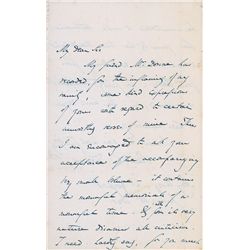 My dear Sir
My friend Mr. Donne has
recorded, for the inflaming of my
vanity, some kind expressions
of yours with regard to certain
unworthy verses of mine. Thus
I am encouraged to ask your
acceptance of the accompanying
small volume - it contains
the mournful memorials of a
mournful time. & from its very
nature disarms all criticism.
I need hardly say, for your